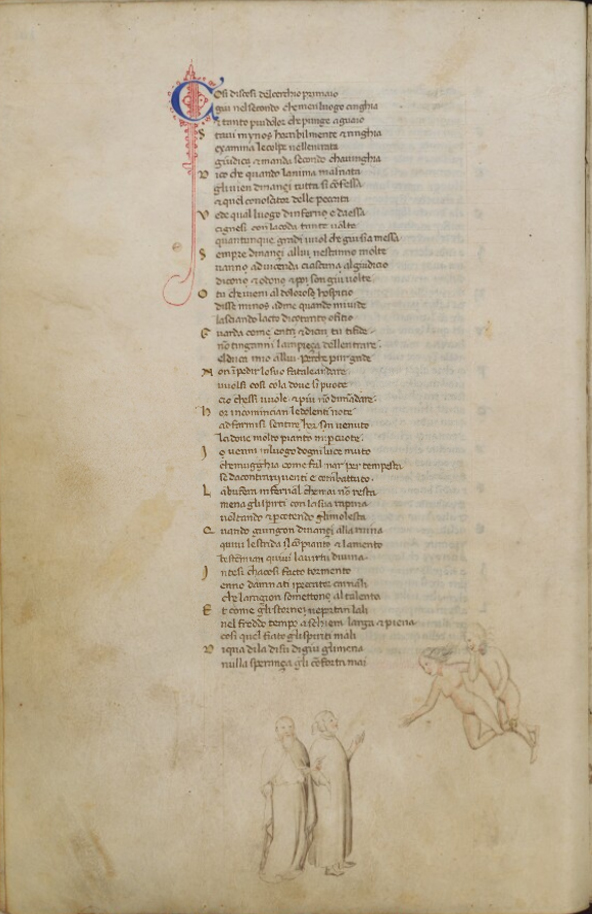 Cosi discesi del cerchio primaio
giu nel secondo che men luogo cinghia
& tanto piu dolor che punge a guaio
Stavi mynos horribilmente & ringhia
examina le colpe nellentrata
giudica & manda secondo chavinghia
Dico che quando lanima malnata
gli vien dinançi tutta si cōfessa
& quel conoscitor delle peccata
Vede qual luogo dinferno e daessa
cignesi con la coda tante volte
quantunque gradi vuol che giu sia messa
Sempre dinançi allui nestanno molte
vanno a vicenda ciascuna al giudicio
dicono & odono & poi son giu volte
O tu che vieni al doloroso hospitio
disse minos adme quando mi vide
lasciando lacto di cotanto ofitio
Guarda come entri & di cui tu ti fide
nō tinganni lampieça dellentrare
elduca mio allui perche pur gride
Non īpedir lo suo fatale andare
vuolsi cosi cola dove si puote
cio che si vuole & piu nō dimādare
Hor incomincian le dolenti note
ad farmisi sentire hor son venuto
la dove molto pianto mi percote
Io venni in luogo dogni luce muto
che mugghia come fa mar per tempesta
se da contrari venti e combattuto
La bufera infernal che mai nō resta
mena gli spirti con la sua rapina
voltando & percotendo gli molesta
Quando giungon dinançi alla ruina
quivi le strida il cōpianto & lamento
bestēmian quivi la virtu divina
Intesi cha cosi facto tormento
enno dannati i peccator carnali
che la ragion somettono al talento
Et come gli stornei ne portan lali
nel freddo tempo a schiera larga & piena
cosi quel fiato gli spirti mali
Di qua di la di su di giu gli mena
nulla sperança gli cōforta mai